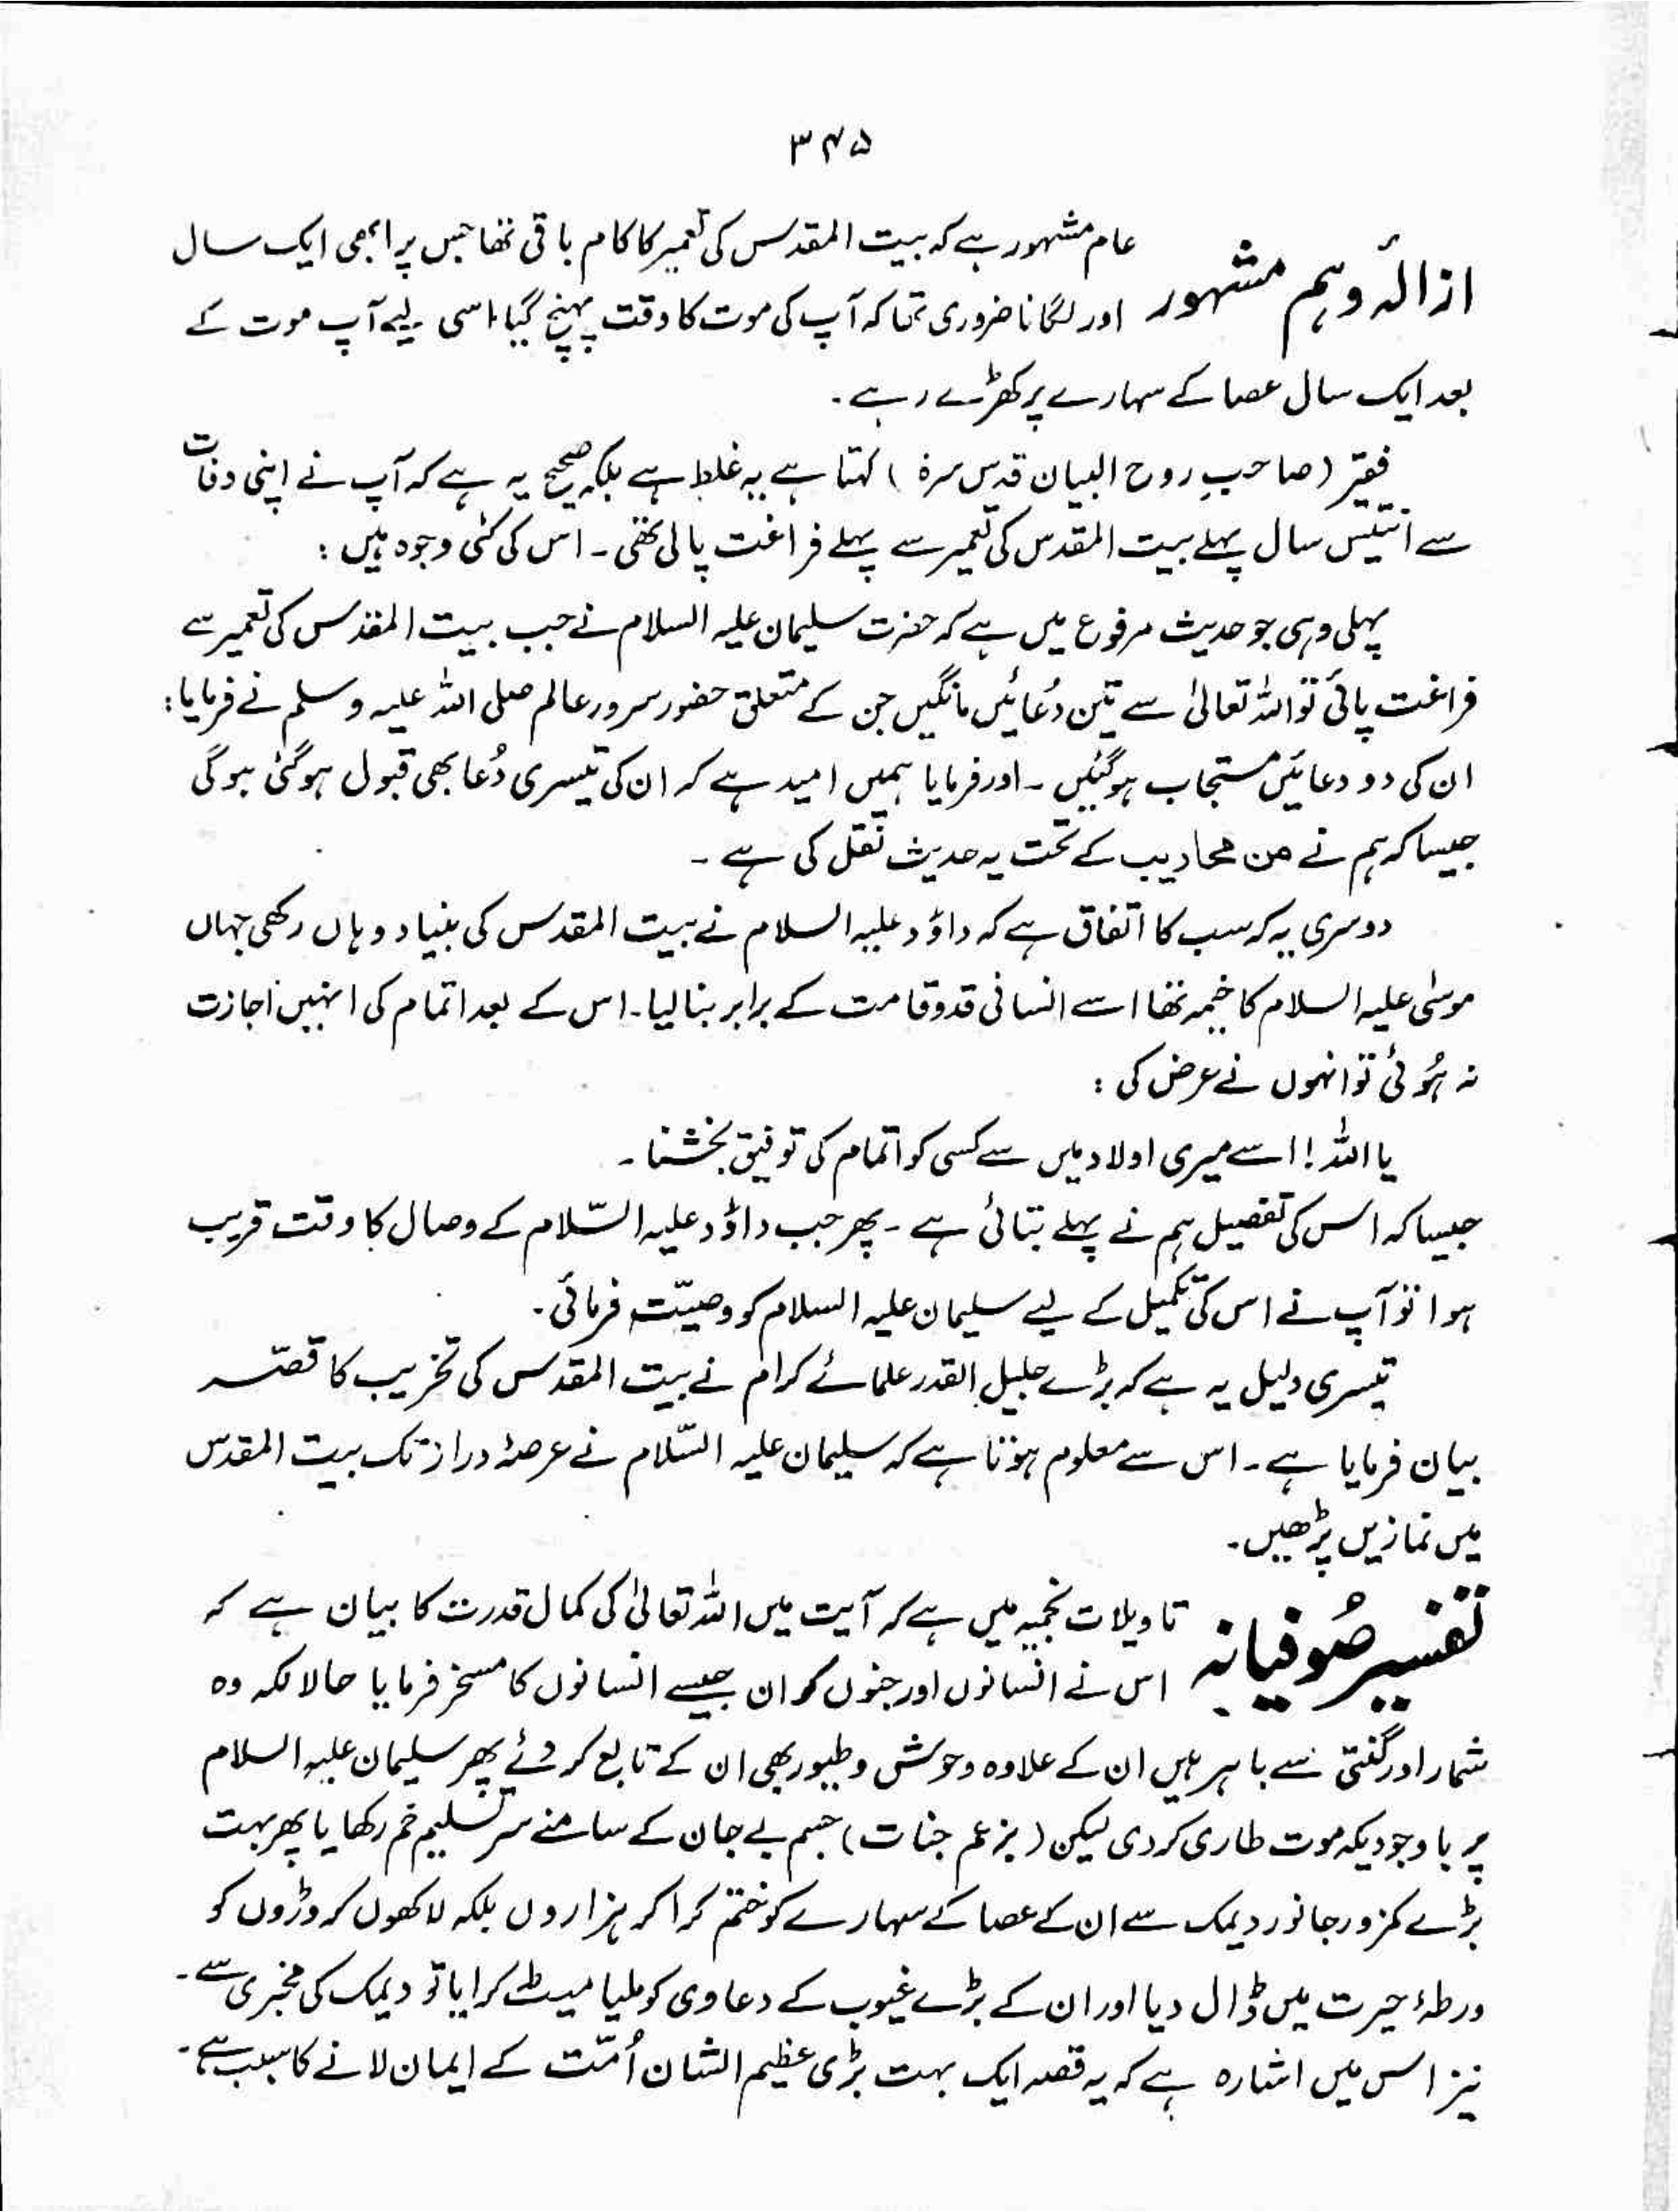 ۳۴۵
ازالۂ وہم مشہور عام مشہور ہے کہ بیت المقدس کی تعمیر کا کام باقی تھا جس پر ابھی ایک سال
اور لگانا ضروری تھا کہ آپ کی موت کا وقت پہنچ گیا، اسی لیے آپ موت کے
بعد ایک سال عصا کے سہارے پر کھڑے رہے۔
فقیر (صاحبِ روح البیان قدس سرہٗ) کہتا ہے یہ غلط ہے بلکہ صحیح یہ ہے کہ آپ نے اپنی وفات
سے انتیس سال پہلے بیت المقدس کی تعمیر سے پہلے فراغت پالی تھی۔ اس کی کئی وجوہ ہیں :
پہلی وہی جو حدیث مرفوع میں ہے کہ حضرت سلیمان علیہ السلام نے جب بیت المقدس کی تعمیر سے
فراغت پائی تو اللہ تعالیٰ سے تین دُعائیں مانگیں جن کے متعلق حضور سرور عالم صلی اللہ علیہ وسلم نے فرمایا :
ان کی دو دعائیں مستجاب ہوگئیں۔ اور فرمایا ہمیں امید ہے کہ ان کی تیسری دُعا بھی قبول ہوگئی ہوگی
جیسا کہ ہم نے من محاریب کے تحت یہ حدیث نقل کی ہے۔
دوسری یہ کہ سب کا اتفاق ہے کہ داؤد علیہ السلام نے بیت المقدس کی بنیاد وہاں رکھی جہاں
موسٰی علیہ السلام کا خیمہ تھا اسے انسانی قد و قامت کے برابر بنا لیا۔ اس کے بعد اتمام کی انہیں اجازت
نہ ہُوئی تو انہوں نے عرض کی :
یا اللہ! اسے میری اولاد میں سے کسی کو اتمام کی توفیق بخشنا۔
جیسا کہ اس کی تفصیل ہم نے پہلے بتائی ہے۔ پھر جب داؤد علیہ السّلام کے وصال کا وقت قریب
ہوا تو آپ نے اس کی تکمیل کے لیے سلیمان علیہ السلام کو وصیّت فرمائی۔
تیسری دلیل یہ ہے کہ بڑے جلیل القدر علمائے کرام نے بیت المقدس کی تخریب کا قصّہ
بیان فرمایا ہے۔ اس سے معلوم ہوتا ہے کہ سلیمان علیہ السّلام نے عرصۂ دراز تک بیت المقدس
میں نمازیں پڑھیں۔
تفسیر صُوفیانہ تاویلات نجمیہ میں ہے کہ آیت میں اللہ تعالیٰ کی کمال قدرت کا بیان ہے کہ
اس نے انسانوں اور جنوں کو ان جیسے انسانوں کا مسخر فرمایا حالانکہ وہ
شمار اور گنتی سے باہر ہیں ان کے علاوہ وحوش و طیور بھی ان کے تابع کر دئے پھر سلیمان علیہ السلام
پر باوجودیکہ موت طاری کردی لیکن (بزعم جنات) جسم بے جان کے سامنے سر تسلیم خم رکھا یا پھر بہت
بڑے کمزور جانور دیمک سے ان کے عصا کے سہارے کو ختم کرا کر ہزاروں بلکہ لاکھوں کروڑوں کو
ورطۂ حیرت میں ڈال دیا اور ان کے بڑے غیوب کے دعاوی کو ملیا میٹ کرایا تو دیمک کی مخبری سے۔
نیز اس میں اشارہ ہے کہ یہ قصہ ایک بہت بڑی عظیم الشان اُمّت کے ایمان لانے کا سبب ہے۔